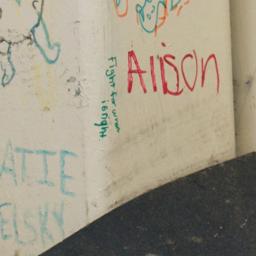 Alison
Fight for what
is right
ATIE
ELSKY